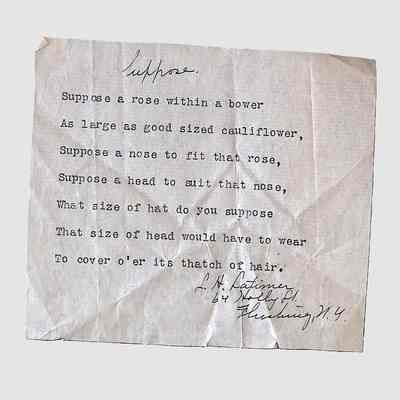 Suppose.
Suppose a rose within a bower
As large as good sized cauliflower,
Suppose a nose to fit that rose,
Suppose a head to suit that nose,
What size of hat do you suppose
That size of head would have to wear
To cover o'er its thatch of hair.
L. H. Latimer
64 Holly St.
Flushing, N.Y.